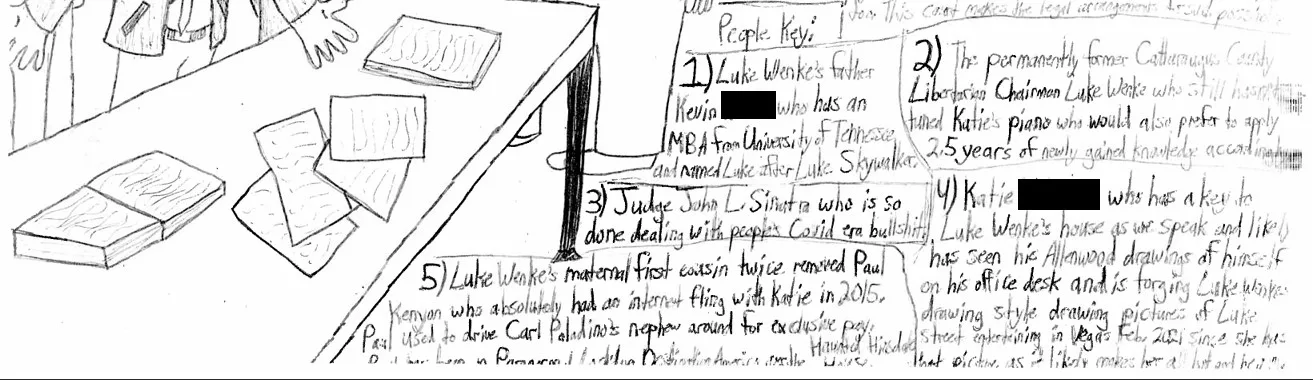 for. This court makes the legal arrangements
People Key:
1) Luke Wenke's father
Kevin who has an
MBA from University of Tennessee
and named Luke after Luke Skywalker.
2) The permanently former Cattaraugus County
Libertarian Chairman Luke Wenke who still hasn't
tuned Katie's piano who would also prefer to apply
2.5 years of newly gained knowledge accordingly
3) Judge John L. Sinatra who is so
done dealing with people's Covid era bullshit
4) Katie who has a key to
Luke Wenke's house as we speak and likely
has seen his Allenwood drawings of himself
on his office desk and is forging Luke Wenke
drawing style drawing pictures of Luke
street entertaining in Vegas Feb. 2021 since she has
that picture, as it likely makes her all hot and
5) Luke Wenke's maternal first cousin twice removed Paul
Kenyon who absolutely had an internet fling with Katie in 2015.
Paul used to drive Carl Paladino's nephew around for exclusive pay.
Haunted Hinsdale
Paul has been in Paranormal Destination America
House